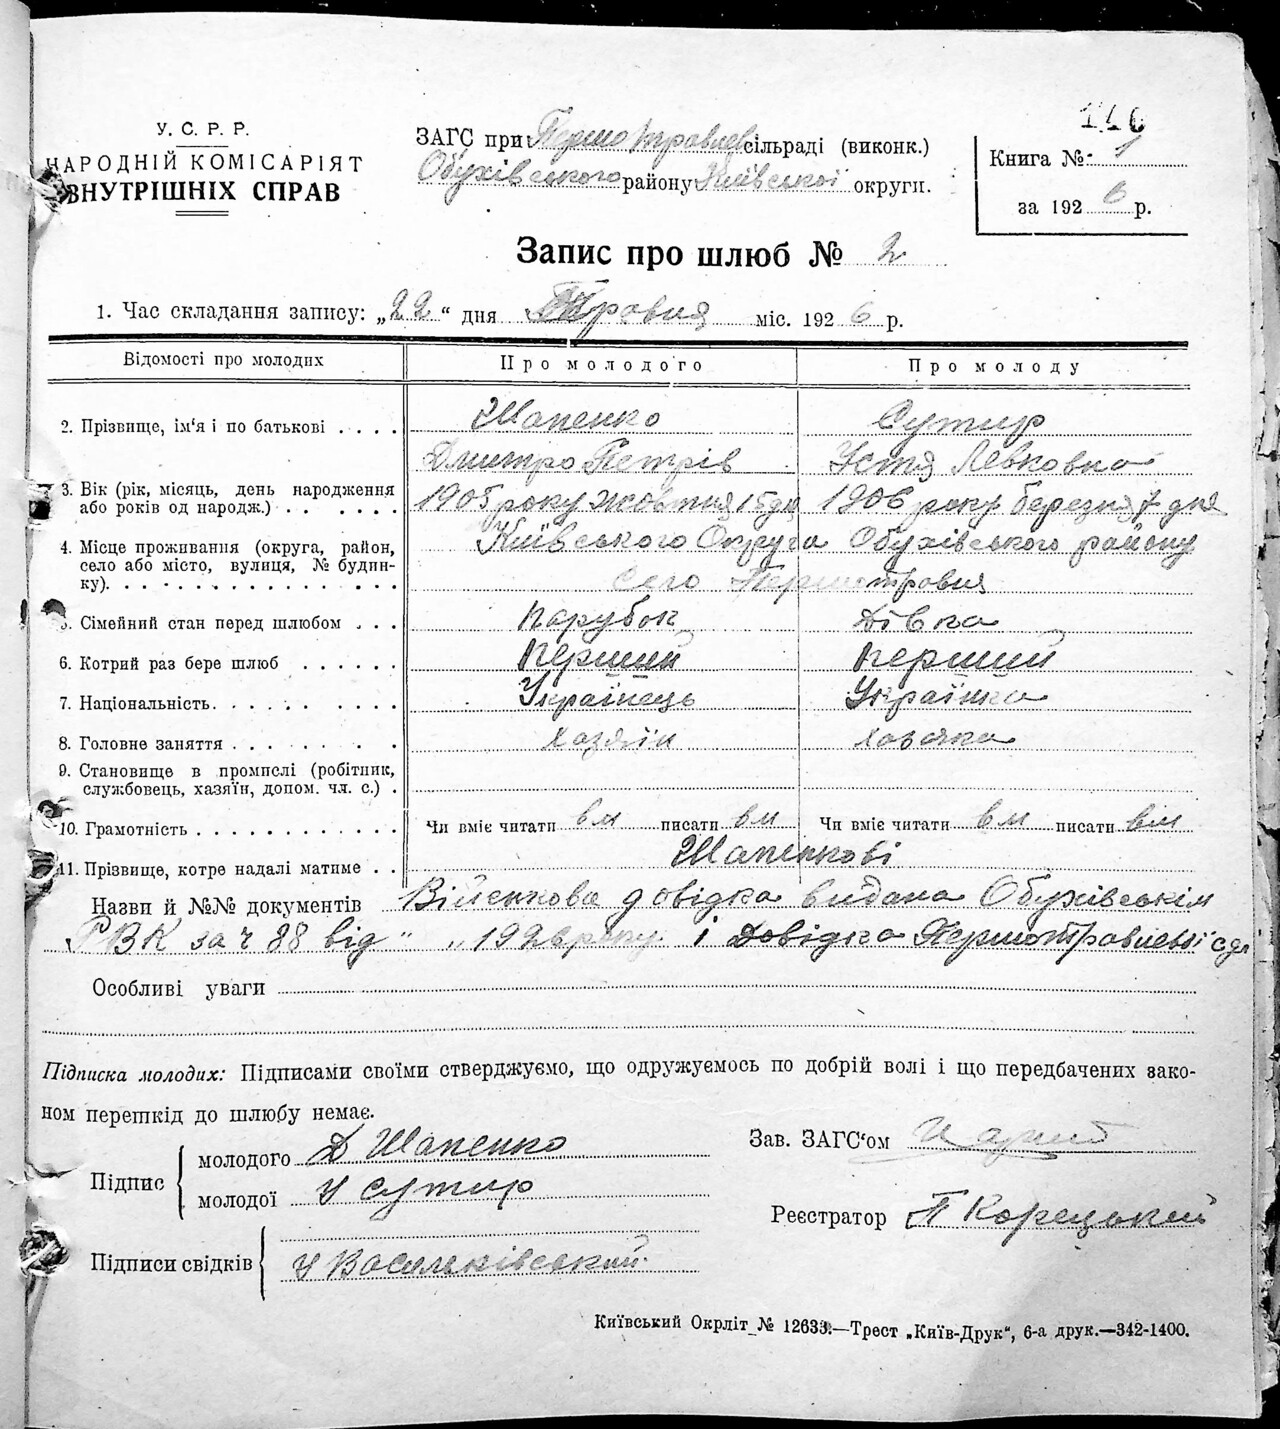 146
У. С. Р. Р.
НАРОДНІЙ КОМІСАРІЯТ
ВНУТРІШНІХ СПРАВ
ЗАГС при Першотравнев сільраді (виконк.)
Обухівського району Київської округи.
Книга № 1
за 1926 р.
Запис про шлюб № 2
1. Час складання запису: „22“ дня Травня міс. 1926 р.
Відомості про молодих Про молодого Про молоду
2. Прізвище, ім‘я і по батькові . . . . Шапенко Сутир
Дмитро Петрів Устя Левковна
3. Вік (рік, місяць, день народження
або років од народж.) . . . . . . 1905 року жовтня 15 дня 1906 року березня 7 дня
4. Місце проживання (округа, район,
село або місто, вулиця, № будин-
ку). . . . . . . . . . . . . . . .
Київського Округа Обухівського району
Село Першотравня
5. Сімейний стан перед шлюбом . . . Парубок Дівка
6. Котрий раз бере шлюб . . . . . . Перший Перший
7. Національність. . . . . . . . . . Українець Українка
8. Головне заняття . . . . . . . . Хазяїн
9. Становище в промислі (робітник,
службовець, хазяїн, допом. чл. с.) .
10. Грамотність . . . . . . . . . . . . Чи вміє читати вм писати вм Чи вміє читати вм писати вм
11. Прізвище, котре надалі матиме . . Шапенкові
Назви й №№ документів Військова довідка видана Обухівським
РВК за ч 88 від „ „ 1926 року і Довідка Першотравневої с/р
Особливі уваги
Підписка молодих: Підписами своїми стверджуємо, що одружуємось по добрій волі і що передбачених зако-
ном перешкід до шлюбу немає.
Підпис
молодого Д Шапенко
молодої У Сутир
Зав. ЗАГС‘ом
Реєстратор П Корецький
Підписи свідків У Васильківський
Київський Окрліт № 12633.—Трест „Київ-Друк“, 6-а друк.—342-1400.